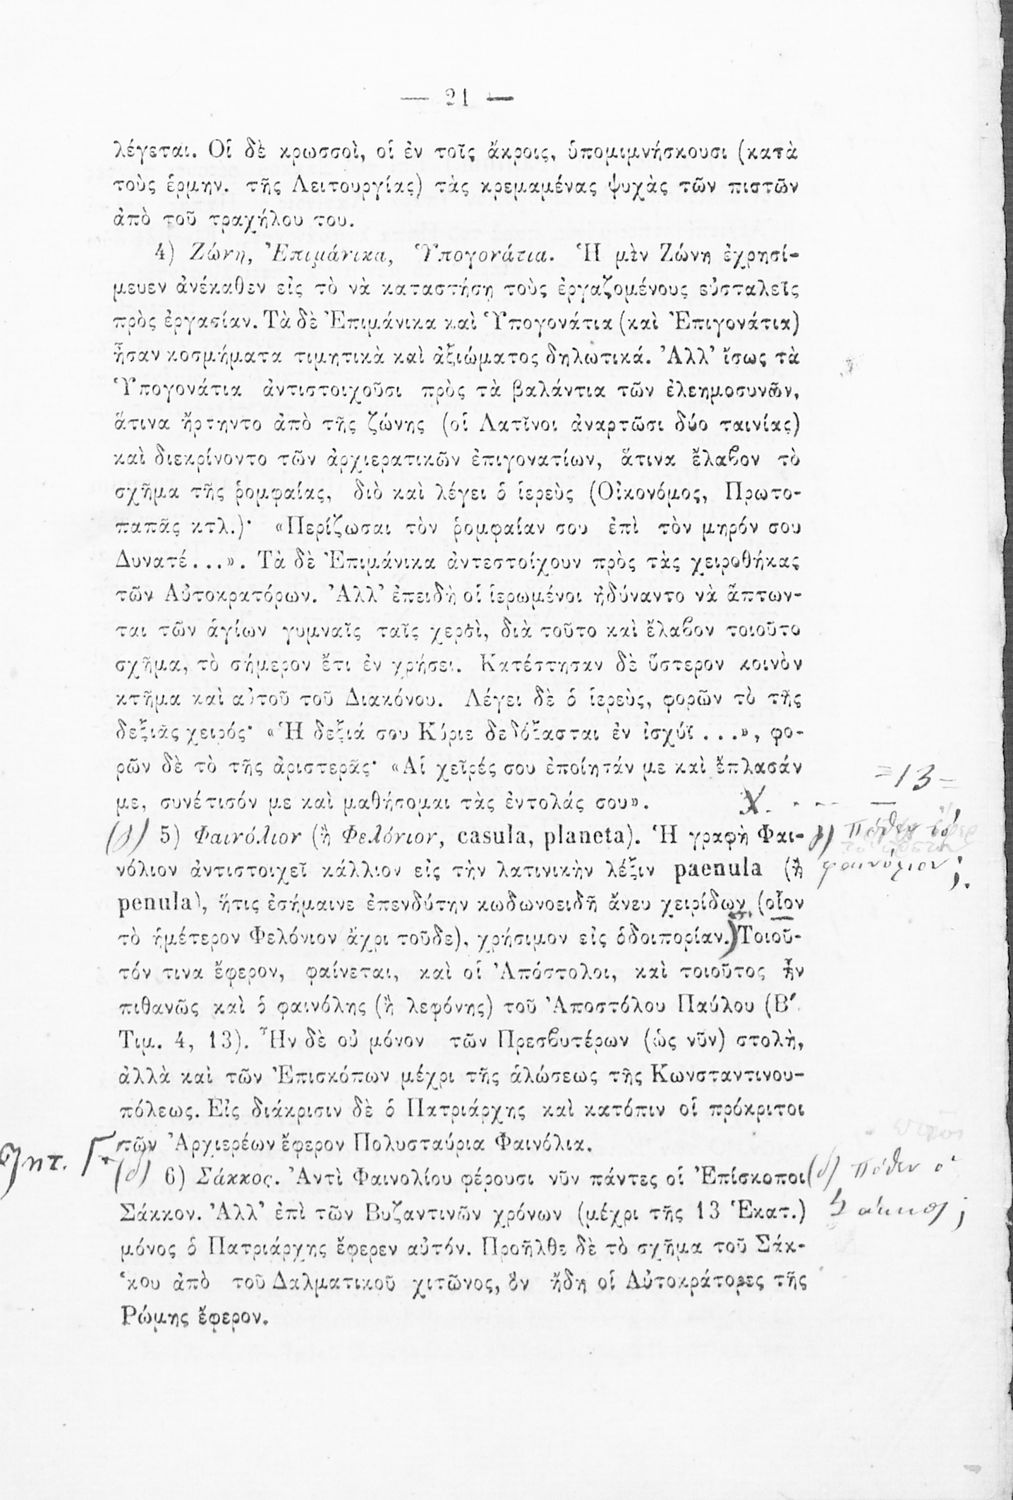 — 21 —
λέγεται. Οἱ δὲ κρωσσοὶ, οἱ ἐν τοῖς ἄκροις, ὑπομιμνήσκουσι (κατὰ
τοὺς ἑρμην. τῆς Λειτουργίας) τὰς κρεμαμένας ψυχὰς τῶν πιστῶν
ἀπὸ τοῦ τραχήλου του.
4) Ζώνη, Ἐπιμάνικα, Ὑπογονάτια. Ἡ μὲν Ζώνη ἐχρησί-
μευεν ἀνέκαθεν εἰς τὸ νὰ καταστήση τοὺς ἐργαζομένους εὐσταλεῖς
πρὸς ἐργασίαν. Τὰ δὲ Ἐπιμάνικα καὶ Ὑπογονάτια (καὶ Ἐπιγονάτια)
ἦσαν κοσμήματα τιμητικὰ καὶ ἀξιώματος δηλωτικά. Ἀλλ' ἴσως τὰ
Ὑπογονάτια ἀντιστοιχοῦσι πρὸς τὰ βαλάντια τῶν ἐλεημοσυνῶν,
ἅτινα ἤρτηντο ἀπὸ τῆς ζώνης (οἱ Λατῖνοι ἀναρτῶσι δύο ταινίας)
καὶ διεκρίνοντο τῶν ἀρχιερατικῶν ἐπιγονατίων, ἅτινα ἔλαβον τὸ
σχῆμα τῆς ῥομφαίας, διὸ καὶ λέγει ὁ ἱερεὺς (Οἰκονόμος, Πρωτο-
παπᾶς κτλ.)· «Περίζωσαι τὸν ῥομφαίαν σου ἐπὶ τὸν μηρόν σου
Δυνατέ...». Τὰ δὲ Ἐπιμάνικα ἀντεστοίχουν πρὸς τὰς χειροθήκας
τῶν Αὐτοκρατόρων. Ἀλλ' ἐπειδὴ οἱ ἱερωμένοι ἠδύναντο νὰ ἅπτων-
ται τῶν ἁγίων γυμναῖς ταῖς χερσὶ, διὰ τοῦτο καὶ ἔλαβον τοιοῦτο
σχῆμα, τὸ σήμερον ἔτι ἐν χρήσει. Κατέστησαν δὲ ὕστερον κοινὸν
κτῆμα καὶ αὐτοῦ τοῦ Διακόνου. Λέγει δὲ ὁ ἱερεὺς, φορῶν τὸ τῆς
δεξιᾶς χειρός· «Ἡ δεξιά σου Κύριε δεδόξασται ἐν ἰσχύϊ...», φο-
ρῶν δὲ τὸ τῆς ἀριστερᾶς· «Αἱ χεῖρές σου ἐποίησάν με καὶ ἔπλασάν
=13=
με, συνέτισόν με καὶ μαθήσομαι τὰς ἐντολάς σου».
5) Φαινόλιον (ἢ Φελόνιον, casula, planeta). Ἡ γραφὴ Φαι-
πόθεν τό
φαινόλιον;
νόλιον ἀντιστοιχεῖ κάλλιον εἰς τὴν λατινικὴν λέξιν paenula (ἢ
penula), ἥτις ἐσήμαινε ἐπενδύτην κωδωνοειδῆ ἄνευ χειρίδων (οἷον
τὸ ἡμέτερον Φελόνιον ἄχρι τοῦδε), χρήσιμον εἰς ὁδοιπορίαν. Τοιοῦ-
τόν τινα ἔφερον, φαίνεται, καὶ οἱ Ἀπόστολοι, καὶ τοιοῦτος ἦν
πιθανῶς καὶ ὁ φαινόλης (ἢ λεφόνης) τοῦ Ἀποστόλου Παύλου (Β΄.
Τιμ. 4, 13). Ἦν δὲ οὐ μόνον τῶν Πρεσβυτέρων (ὡς νῦν) στολὴ,
ἀλλὰ καὶ τῶν Ἐπισκόπων μέχρι τῆς ἁλώσεως τῆς Κωνσταντινου-
πόλεως. Εἰς διάκρισιν δὲ ὁ Πατριάρχης καὶ κατόπιν οἱ πρόκριτοι
τῶν Ἀρχιερέων ἔφερον Πολυσταύρια Φαινόλια.
(δ) 6) Σάκκος. Ἀντὶ Φαινολίου φέρουσι νῦν πάντες οἱ Ἐπίσκοποι
(δ) πόθεν ὁ
Σάκκος;
Σάκκον. Ἀλλ' ἐπὶ τῶν Βυζαντινῶν χρόνων (μέχρι τῆς 13 Ἑκατ.)
μόνος ὁ Πατριάρχης ἔφερεν αὐτόν. Προῆλθε δὲ τὸ σχῆμα τοῦ Σάκ-
κου ἀπὸ τοῦ Δαλματικοῦ χιτῶνος, ὃν ἤδη οἱ Αὐτοκράτορες τῆς
Ῥώμης ἔφερον.